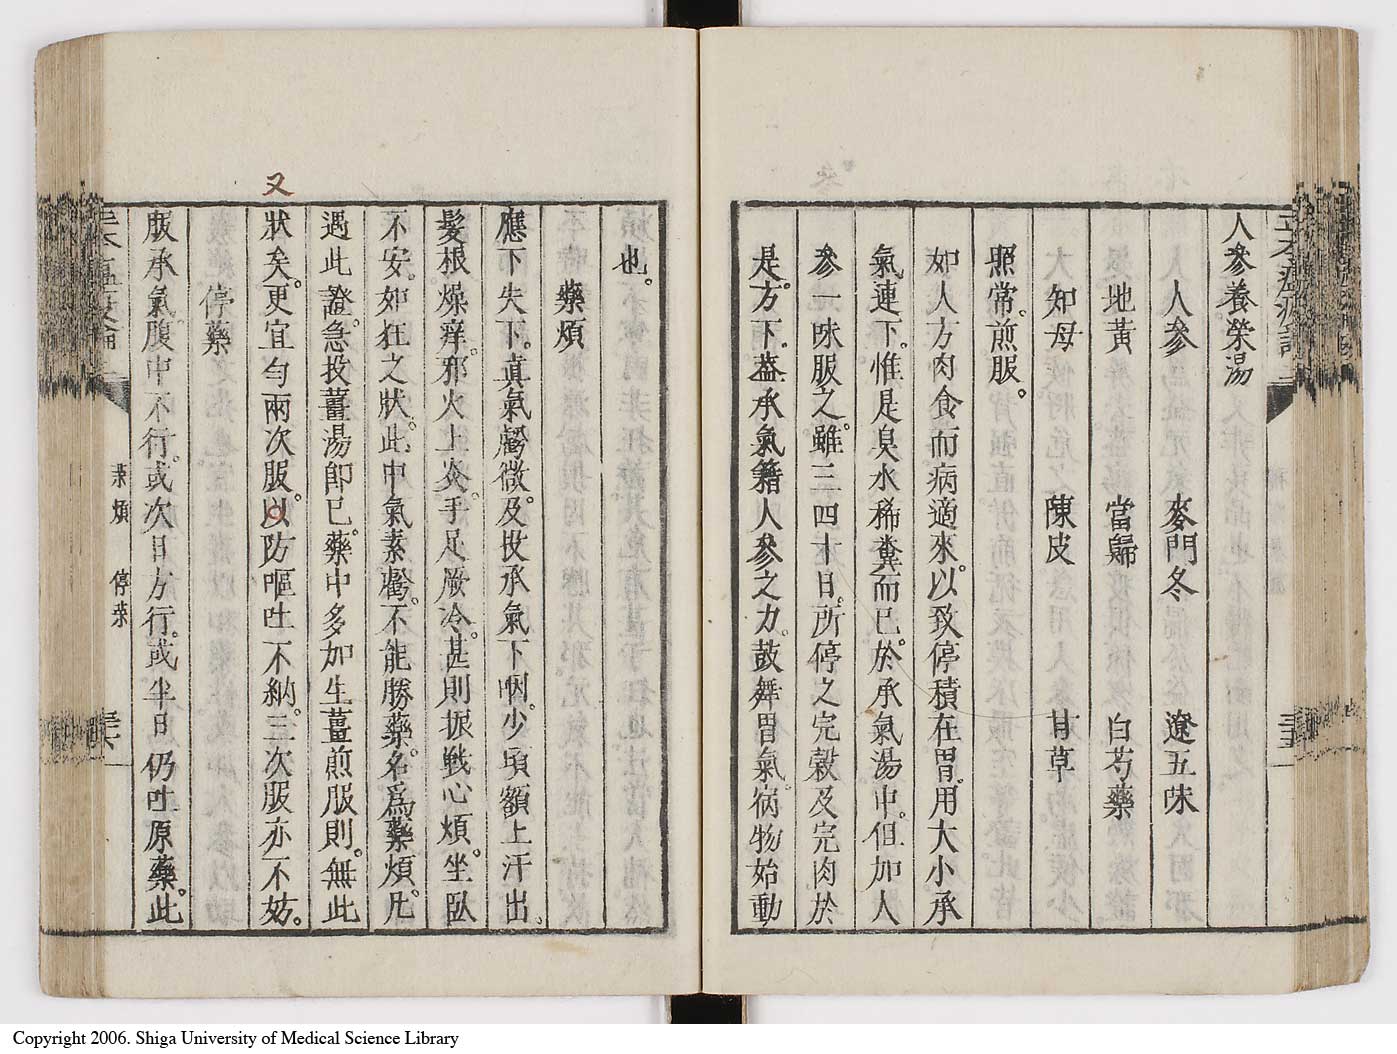 人參養榮湯
人參　麥門冬　遼五味
地黃　當歸　白芍藥
知母　陳皮　甘草
照常煎服。
如人方肉食而病適來。以致停積在胃。用大小承
氣連下。惟是臭水稀糞而已。於承氣湯中。但加人
參一味服之。雖三四十日。所停之完穀及完肉於
是。方下。蓋承氣籍人參之力。鼓舞胃氣。病物始動
也。
藥煩
應下失下。眞氣虧微。及投承氣下咽。少頃額上汗出。
髮根燥痒。邪火上炎。手足厥冷。甚則振戰心煩。坐臥
不安。如狂之狀。此中氣素虧。不能勝藥。名爲藥煩。凡
遇此證。急投薑湯卽已。藥中多加生薑煎服則。無此
又
狀矣。更宜勻兩次服。以防嘔吐不納。三次服亦不妨。
停藥
服承氣。腹中不行。或次日方行。或半日仍吐原藥。此
藥煩　停藥
三十六
Copyright 2006. Shiga University of Medical Science Library